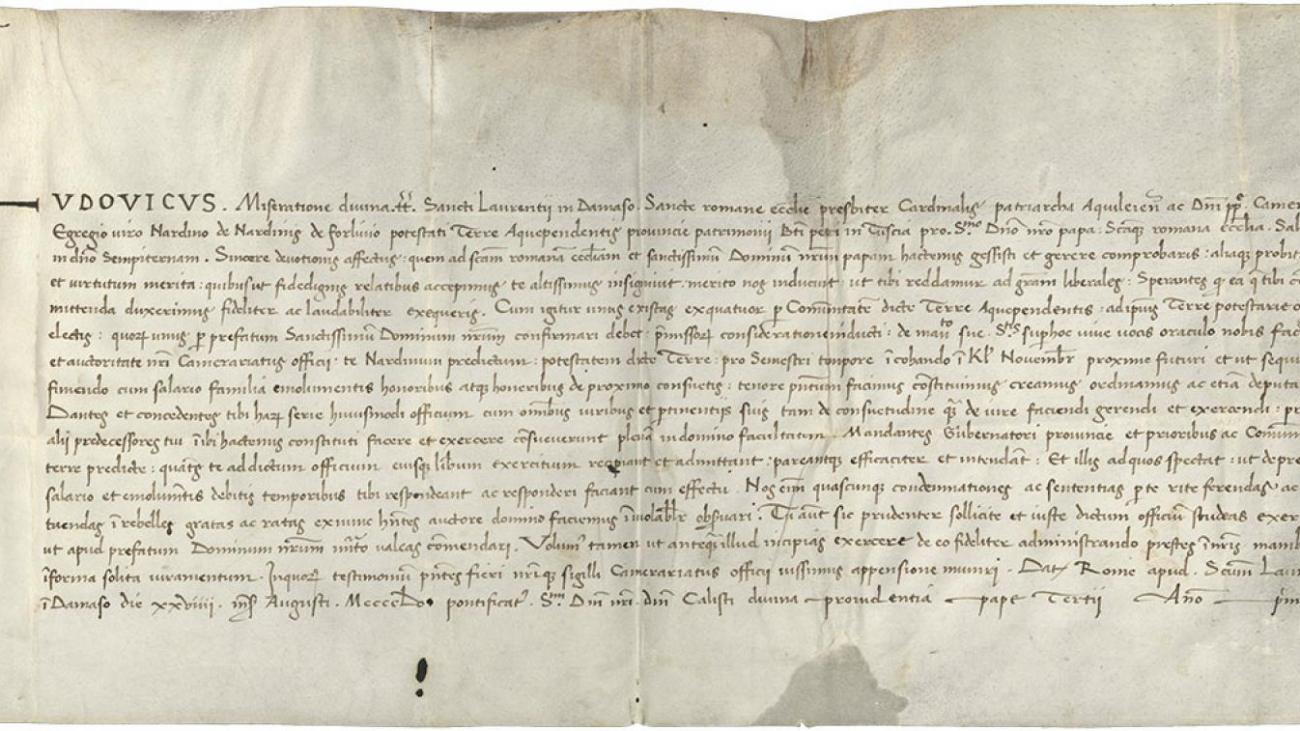 VDOVICVS. Miseratione divina .tt̃. Sancti Laurentii in Damaso Sancte romane ecclie presbiter Cardinalis patriarcha Aquileieñ ac Dñi pp̃. Camer
Egregio viro Nardino de Nardinis de forlivio potestati Terre Aquependentis provincie patrimonii bti petri in Tuscia pro. S.mo Dño nr̃o papa: Scaq̃ romana ecclesia. Sal
in dño Sempiternam. Sincere devotionis affectus: quem ad scam romanã eccliam et sanctissimũ Dominũ nrũm papam hactenus gessisti et gerere comprobaris: aliaq̃ probit
et virtutum merita: quibus ut fidedignis relatibus accepimus te altissimus insignivit merito nos inducunt: ut tibi reddamur ad grãm liberales: Sperantes q̃ ea q̃ tibi cõ
mittenda duxerimus fideliter ac laudabiliter exequeris. Cum igitur unus existas ex quatuor p Comunitatẽ dicte Terre Aquependentis: ad ipius Terre potestarie o
electis: quoꝝ unus ꝑ prefatum Sanctissimũ Dominum nrũm confirmari debet: pmissoꝝ consideratione inducti: de mandto sue. S.tis sup hoc vive vocis oraculo nobis fac
et auctoritate nr̃i Camerariatus officii: te Nardinum predictum: potestatem dicte Terre: pro Semestri tempore ĩcohando ĩ Kl Novembr̃ proximo futuri et ut sequi
finiendo cum salario familia emolumentis honoribus atq̃ honeribus de proximo consuetis: tenore pñtium facimus cõstituimus creamus ordinamus ac etiã deputa
Dantes et concedentes tibi haꝝ serie huiusmodi officium cum omibus iuribus et ptinentijs suis tam de consuetudine q̃ de iure faciendi gerendi et exercendi: pr
alij predecessores tui ĩbi hactenus constituti facere et exercere cõsueverunt plenã in domino facultatem. Mandantes Gubernatori provincie et prioribus ac Comun
terre predicte: quatẽs te ad dictum officium eiusq̃ libum exercitium recipiant et admittant: pareantq̃ efficaciter et intendãt: Et illis ad quos spectat: ut de pre
salario et emolumẽtis debitis temporibus tibi respondeant ac responderi faciant cum effectu. Nos eñi quascunq̃ condemnationes ac sententias p te rite ferendas ac
tuendas ĩ rebelles gratas ac ratas ex nunc hñtes auctore domino faciemus ĩviolabilr̃ obsvari. Tu aũt sic prudenter sollicite et iuste dictum officiũ studeas exer
ut apud prefatum Dominum nrũm mr̃to valeas cõmendari. Volum' tamen ut anteq̃ illud incipias exercere de eo fideliter administrando prestes ĩ nr̃is manib
ĩ forma solita iuramentum. In quoꝝ testimoniũ pñtes fieri nr̃iq̃ sigilli Camerariatus officii iussimus appensione muniri. Dat Rome apud. Scum Laur
ĩ Damaso die xxviiii. mẽs Augusti. Mcccclv. pontificat'. S.mi Dñi nr̃i. dñi Calisti divina providentia pape Tertii Año prim